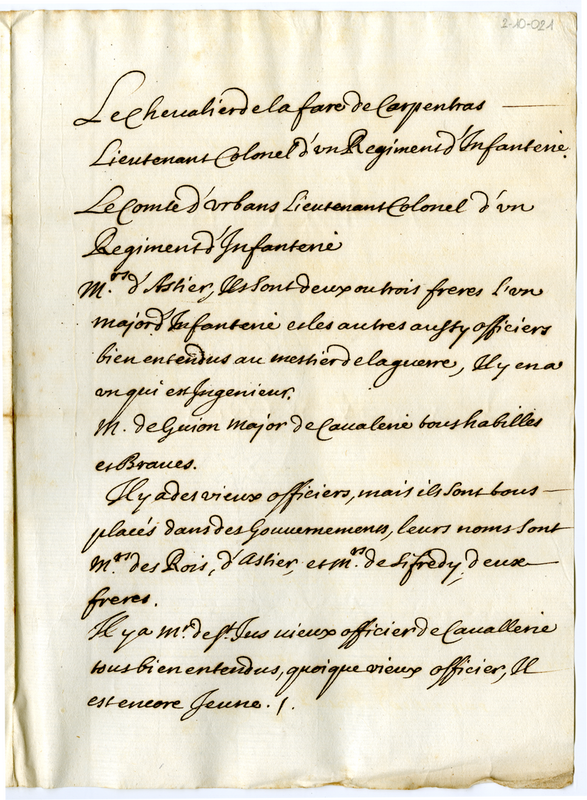 2-10-021
Le Chevalier de la fare de Carpentras
Lieutenant Colonel d'vn Regiment d'Infanterie.
Le Comte d'vrbans Lieutenant Colonel d'vn
Regiment d'Infanterie
M.rs d'Astier, Ils sont deux ou trois freres l'vn
major d'Infanterie et les autres aussy officiers
bien entendus au mestier de la guerre, Il y en a
vn qui est Ingenieur.
M. de Guion Major de Cavalerie tous habilles
et Braves.
Il y a des vieux officiers, mais ils sont tous
placés dans des Gouvernements, leurs noms sont
M.rs des Rois, d'Astier, et M.rs de Sifredy deux
freres.
Il y a M.r de St. Jus vieux officier de Cavallerie
tous bien entendus, quoique vieux officier, Il
est encore Jeune. /.